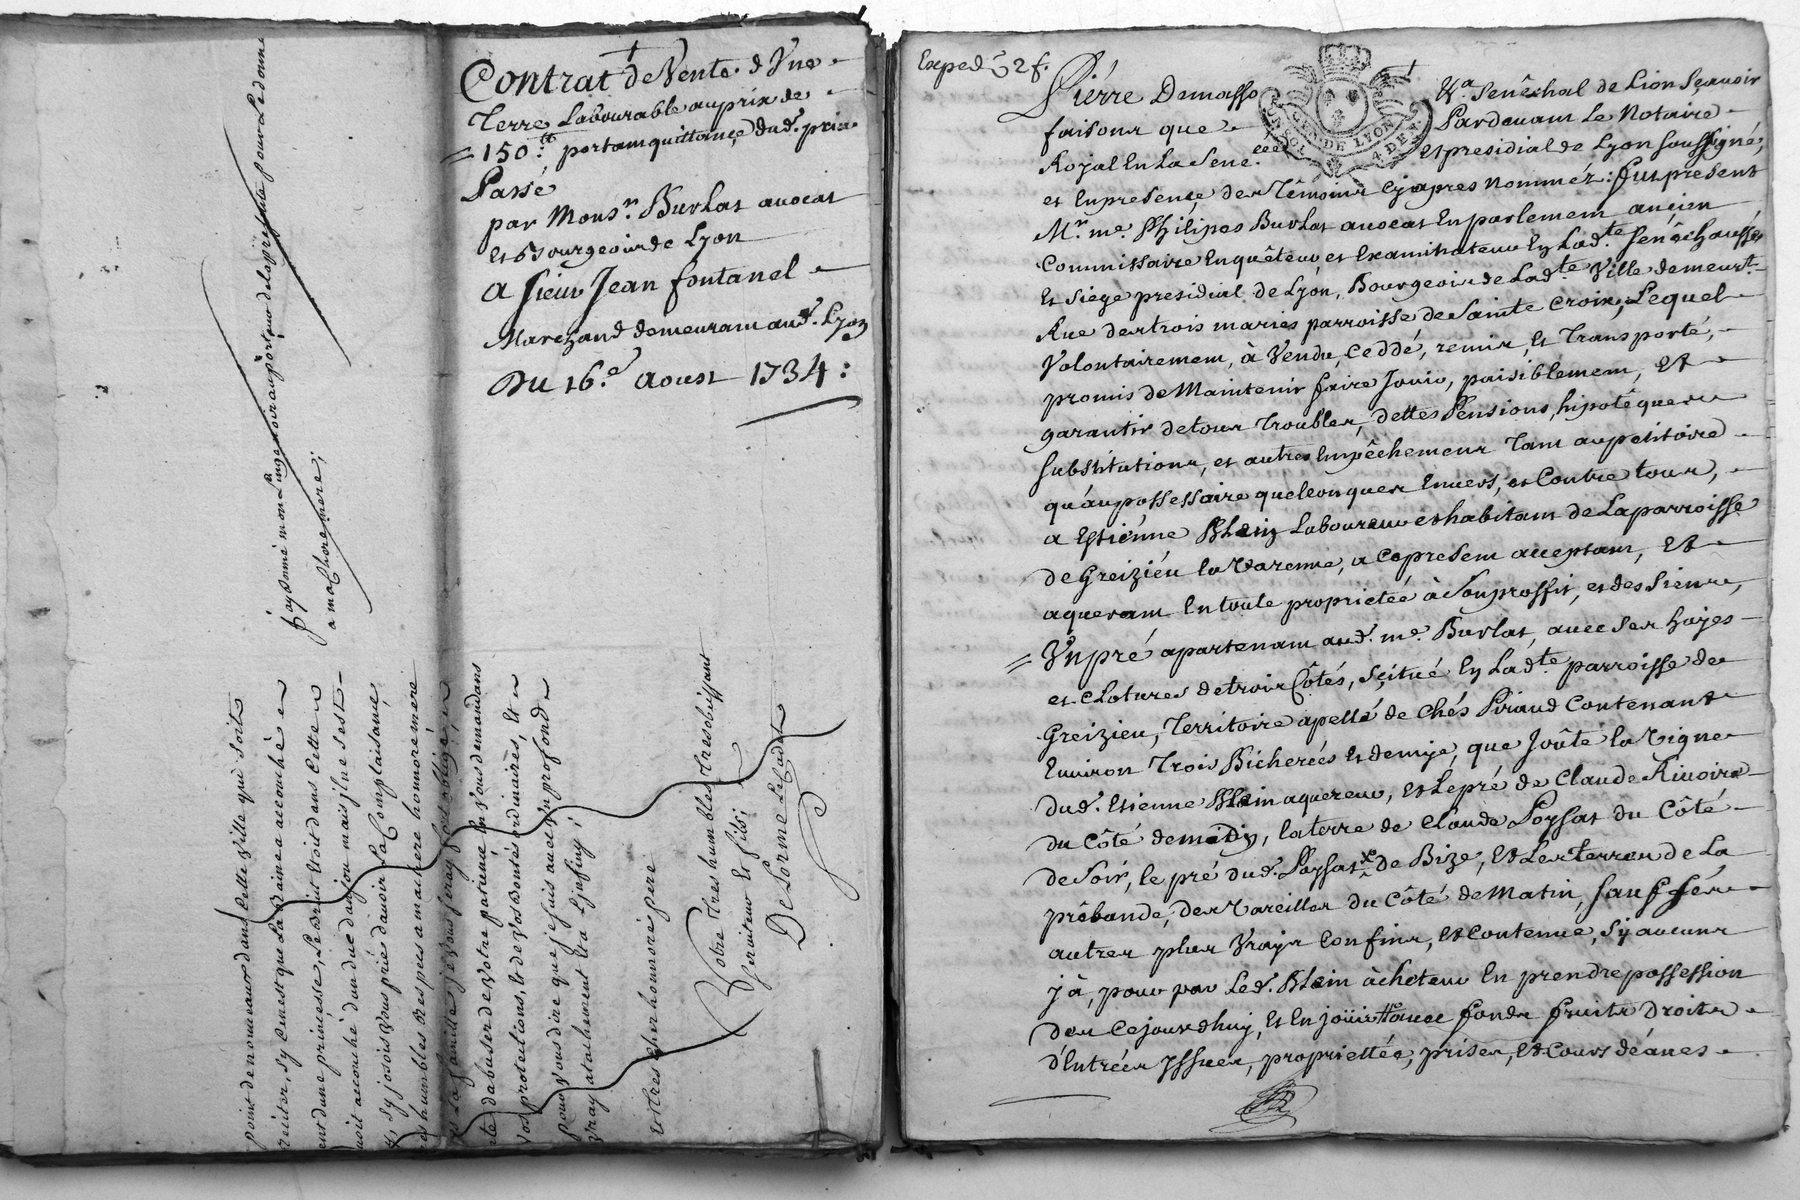 Contrat de Vente d'Une
Terre Labourable au prix de
150.tt portant quittance dud. prix
Passé
par Monsr. Burlat avocat
et bourgeois de Lyon
a Sieur Jean fontanel
Marchand demeurant aud. Lyon
Du 16.e aoust 1734:
a ma Chere mere;
point de nouveaux dans Cette Ville qui soit
reciter, sy Ce nest que La Daine a accouché
dune princesse, Le Bruit Etoit dans Cette
accouché dun duc danjou mais il ne lest
sy josois Vous prié davoir La Complaisance,
tres humbles Respects a ma mere honnorement
La famille je Vous seray fort obligé,
dabuser de Votre patience En Vous demandant
Vos protections, et de Vos bontés ordinaires, Et
pour Vous dire que je suis avec un profond
Vray atachement Et a Linfiny;
Et tres cher honnoré pere
Votre tres humble et tres obeissant
serviteur Et fils;
DeLorme Le Cadet
Exped. 2 f.
GEN. DE LYON
4 DEN.
Piérre Demasso Senêchal de Lion Sçavoir
faisons que Pardevant Le Notaire
Royal En La Sene.cée et presidial de Lyon soussigné,
et En presence des Têmoins Cy apres nommez: fut present
Mr. me. Philipes Burlat avocat En parlement ancien
Commissaire Enquêteur et Examinateur En Lad.te Senêchaussée
Et Siege presidial de Lyon, Bourgeois de Lad.te Ville demeurt.
Rue des trois maries parroisse de Sainte Croix, Lequel
Volontairement, à Vendu, Ceddé, remis, Et Transporté,
promis de Maintenir faire Jouir, paisiblement, Et
garantir de tous Troubles, dettes Pensions, hipotêques
substitutions, et autres Empêchemens Tant au petitoire
qu'au possessoire quelconques Envers, et Contre tous,
a Estiénne Blein Laboureur et habitant de La parroisse
de Greiziéu la Varenne, a Ce present acceptant, Et
aquerant En toute proprietée à Son proffit, et des Siens,
Un pré apartenant aud. me. Burlat, avec Ses hayes
et Clotures de trois Côtés, Scitué En Lad.te parroisse de
Greizieu, Territoire apellé de Chés Piraud Contenant
Environ Trois Bicherées Et demye, que Joûte la Vigne
dud. Etienne Blein aquereur, et Le pré de Claude Rivoire
du Côté de midy, la terre de Claude Poysat du Côté
de Soir, le pré dud. Poysat de Bize, Et Les terres de La
prébande, des Vareilles du Côté de Matin, Sauf Ses
autres plus Vrays Confins, Et Contenue, S'y aucuns
y à, pour par Led. Blein achêteur En prendre possession
des Cejourdhuy, Et En joüissance fonds fruits Droits
d'Entrées Yssues, propriettées, prises, Et Cours déaues